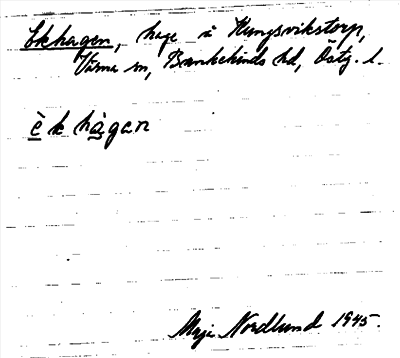 Ekhagen, hage i Kungsvikstorp,
Värna sn, Bankekinds hd, Östg. l.
è k hà̱gan
Maja Nordlund 1945.